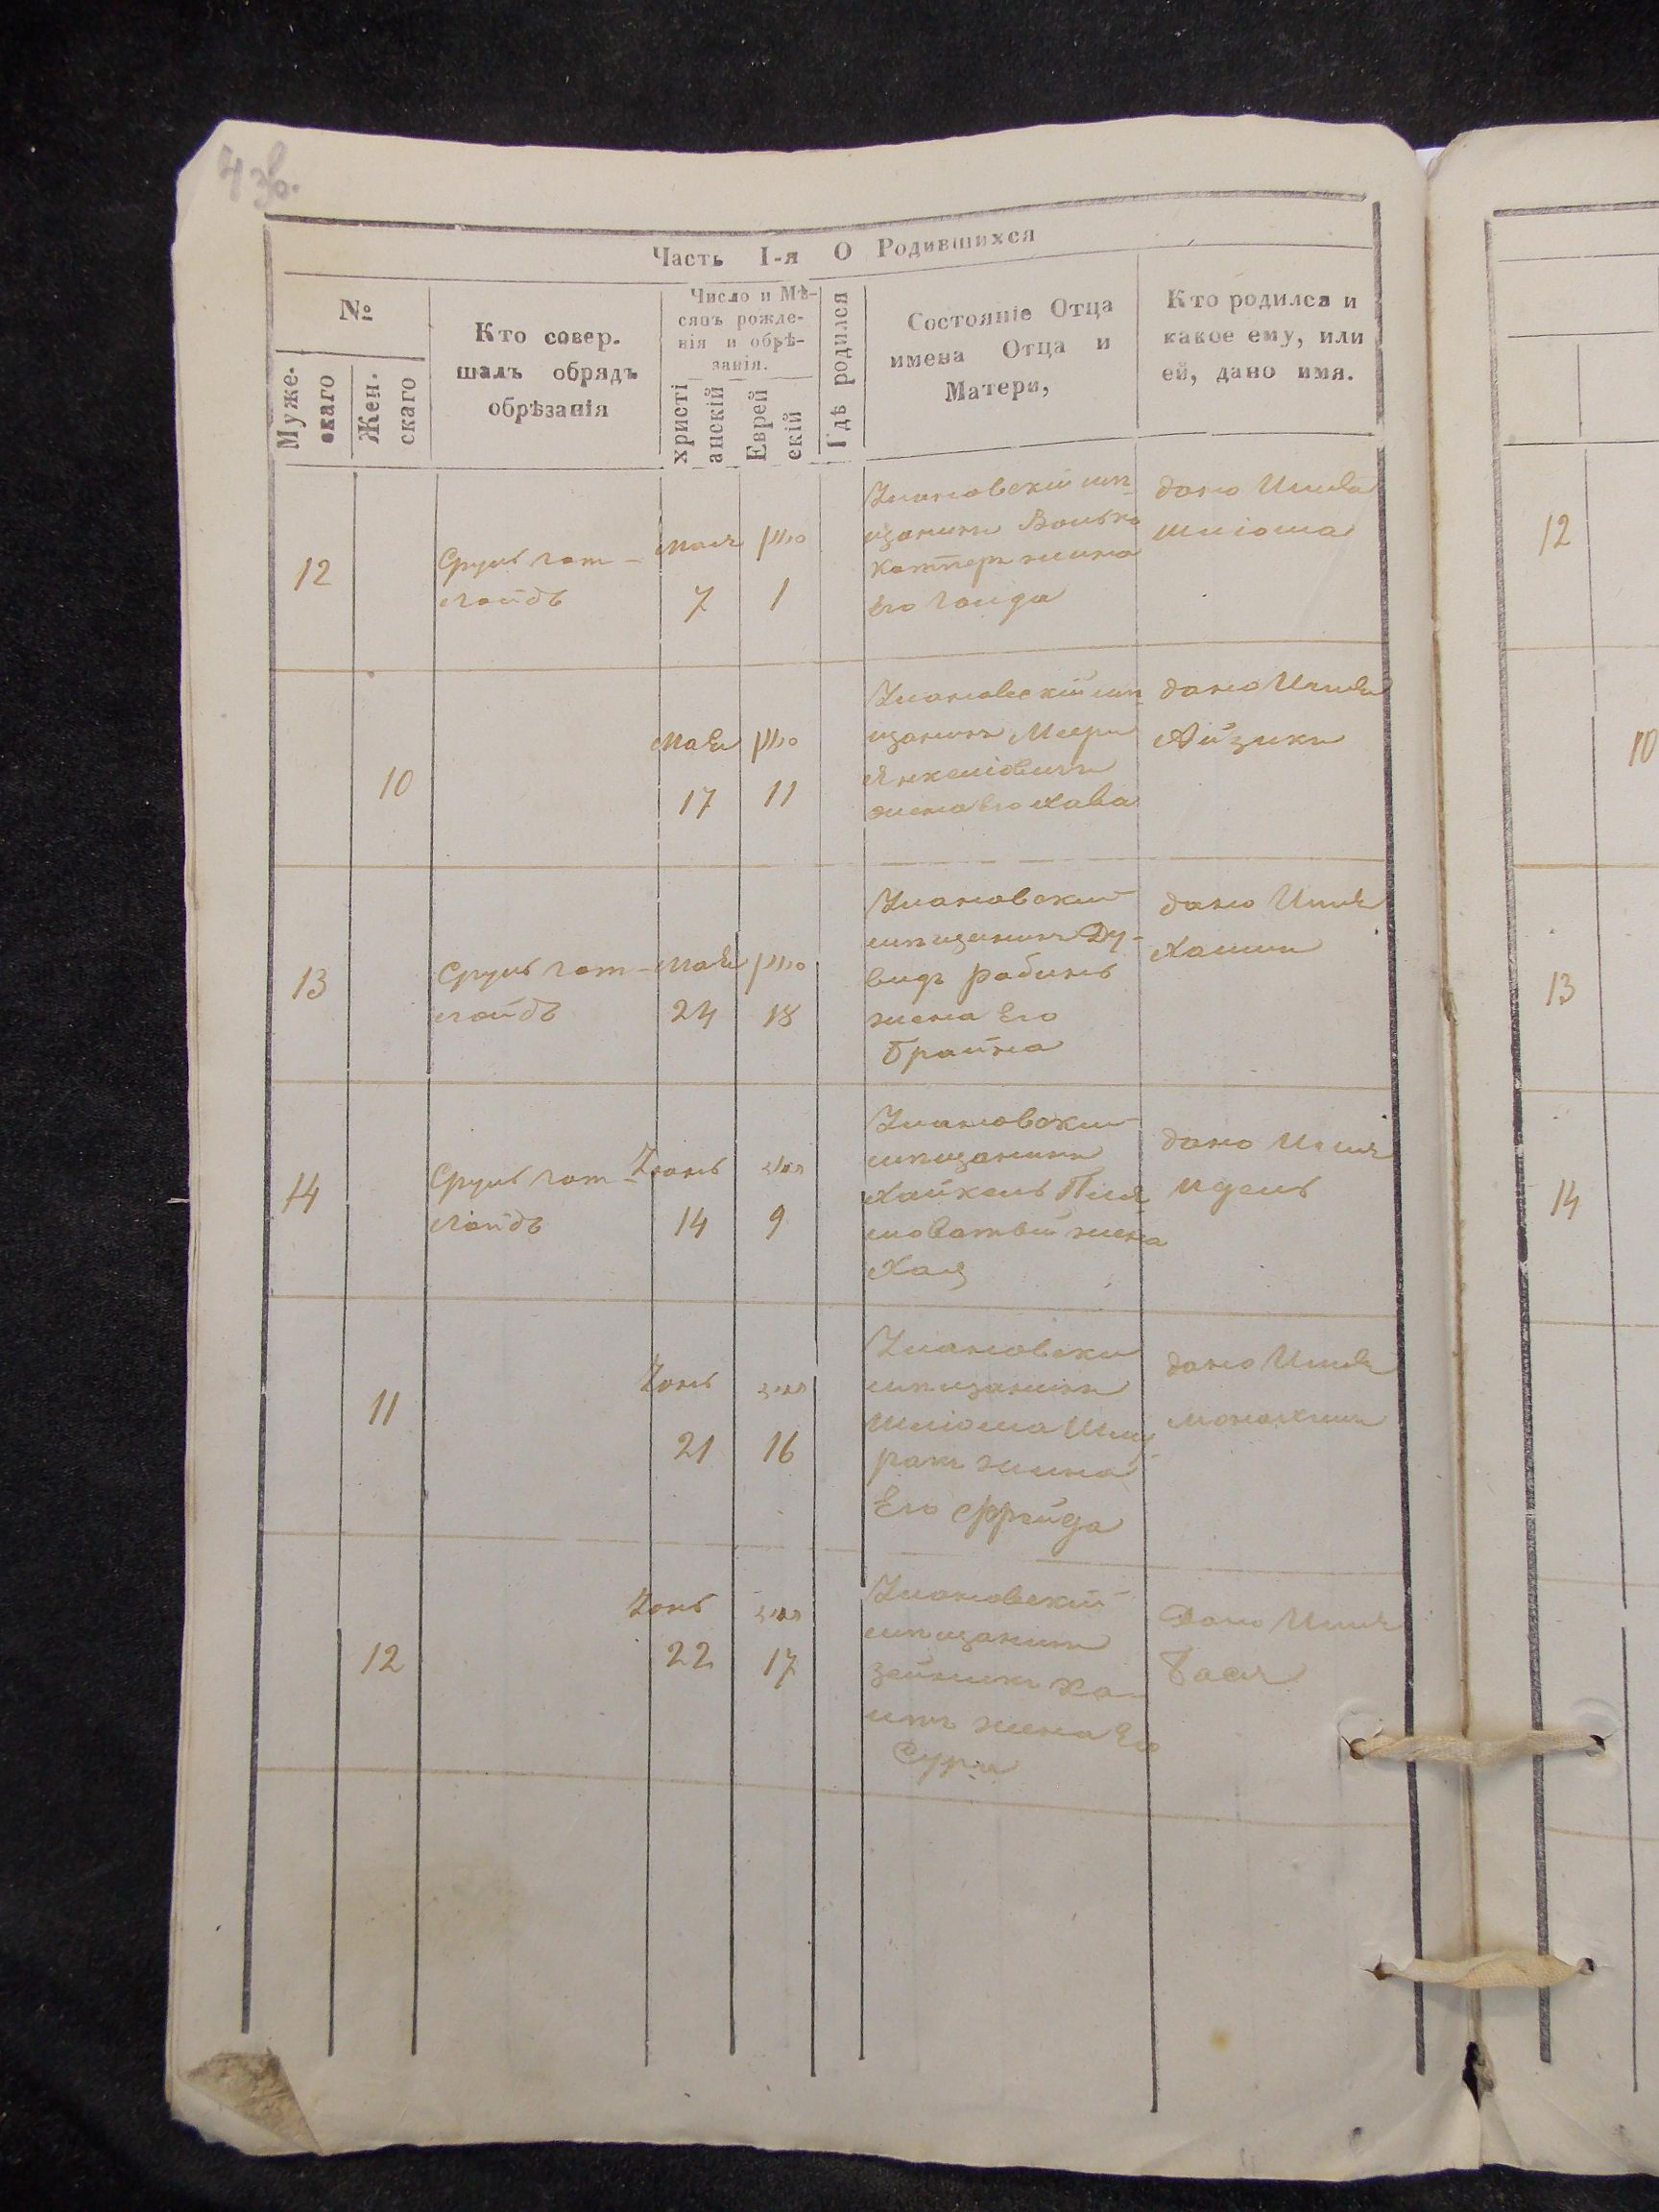 Часть I-я О Родившихся
№
Муже-
скаго
Жен.
скаго
Кто совер-
шалъ обрядъ
обрѣзанія
Число и Мѣ-
сяцъ рожде-
нія и обрѣ-
занія.
христі
анскій
Еврей
скій
Гдѣ родился
Состояніе Отца
имена Отца и
Матери,
Кто родился и
какое ему, или
ей, дано имя.
12
Сруль гот-
лойдъ
мая
7
1
Улановскій мѣ-
щанинъ Волько
жина
Его Гоида
дано Имя
Шліома
10
Мая
17
11
Улановскій мѣ-
щанинъ Мееръ
Янкеліовичъ
жена Его Хава
дано Имя
Айзикъ
13
Сруль гот-
лойдъ
Мая
24
18
Улановский
мѣщанинъ Ду-
видъ рабинъ
жена Его
Брайна
дано Имя
Хаимъ
14
Сруль гот-
лойдъ
Іюнь
14
9
Улановский
мѣщанинъ
Хайкель
жена
Хая
дано Имя
Идель
11
Іюнь
21
16
Улановски
мѣщанинъ
Шліома
жина
Его Фрейда
дано Имя
12
Іюнь
22
17
Улановскій
мѣщанинъ
жена Его
Сура
Дано Имя
Бася
12
10
13
14